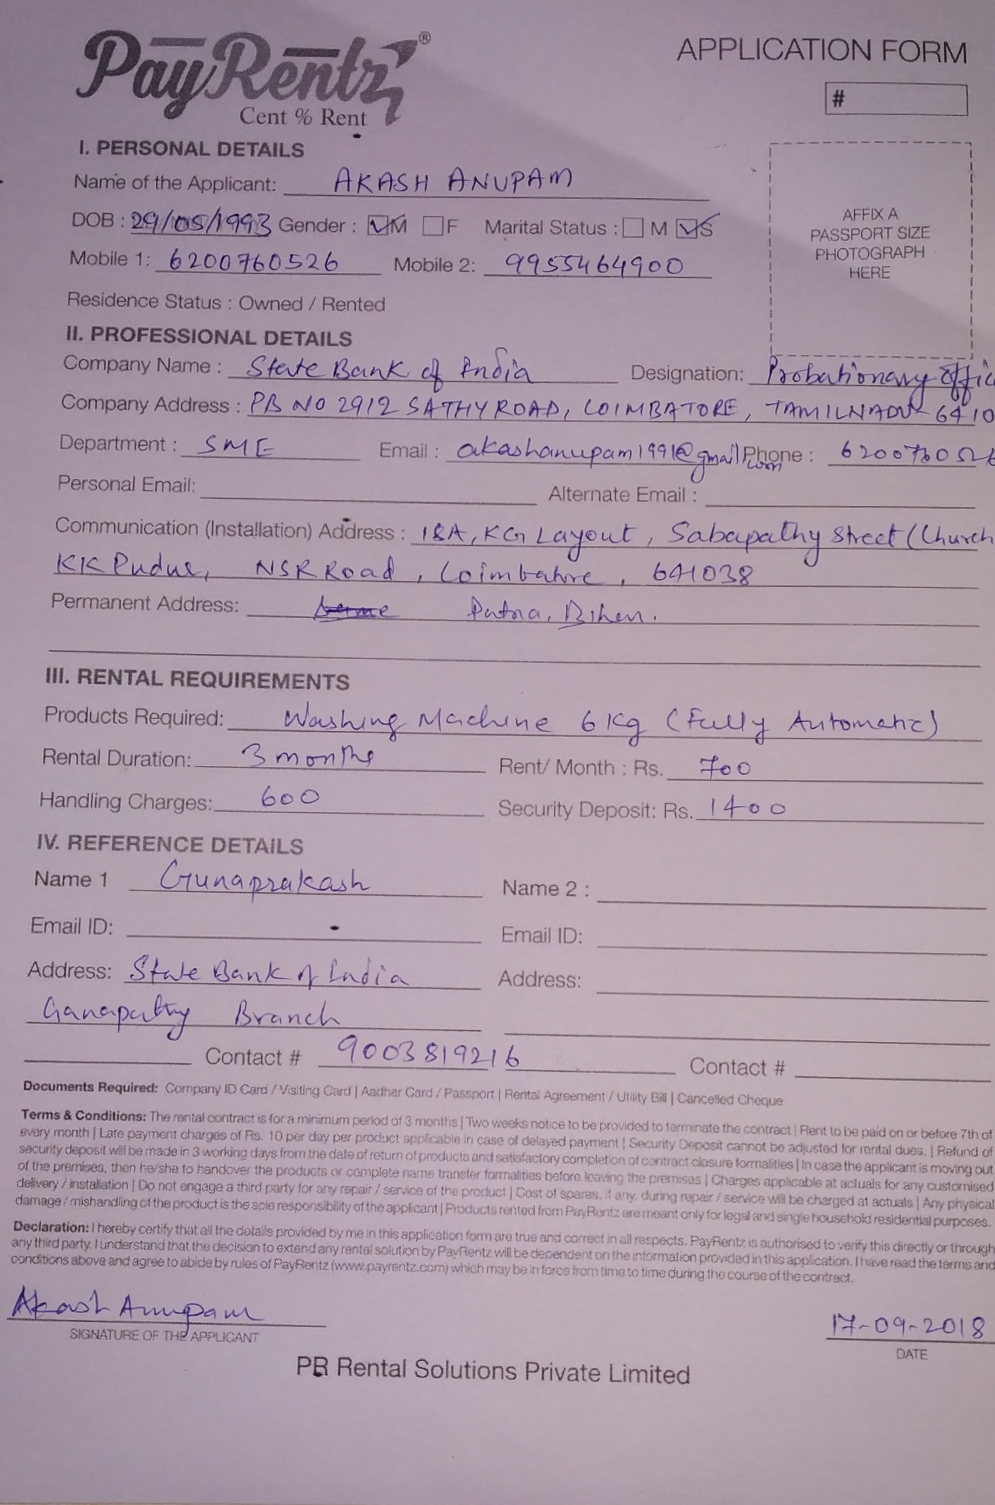 PayRentz®
Cent % Rent
APPLICATION FORM
#
I. PERSONAL DETAILS
Name of the Applicant: AKASH ANUPAM
DOB : 29/05/1993 Gender : ☑M ☐F Marital Status : ☐ M ☑S
Mobile 1: 6200760526 Mobile 2: 9955464900
AFFIX A
PASSPORT SIZE
PHOTOGRAPH
HERE
Residence Status : Owned / Rented
II. PROFESSIONAL DETAILS
Company Name : State Bank of India Designation: Probationary Offic
Company Address : PB NO 2912 SATHY ROAD, COIMBATORE, TAMILNADU 6410
Department : SME Email : akashanupam1991@gmail.com Phone : 620076052
Personal Email: Alternate Email :
Communication (Installation) Address : 18A, KG Layout, Sabapathy Street (Church
KK Pudur, NSR Road, Coimbatore, 641038
Permanent Address: Patna, Bihar.
III. RENTAL REQUIREMENTS
Products Required: Washing Machine 6 Kg (Fully Automatic)
Rental Duration: 3 months Rent/ Month : Rs. 700
Handling Charges: 600 Security Deposit: Rs. 1400
IV. REFERENCE DETAILS
Name 1 Gunaprakash Name 2 :
Email ID: Email ID:
Address: State Bank of India Address:
Ganapathy Branch
Contact # 9003819216 Contact #
Documents Required: Company ID Card / Visiting Card | Aadhar Card / Passport | Rental Agreement / Utility Bill | Cancelled Cheque
Terms & Conditions: The rental contract is for a minimum period of 3 months | Two weeks notice to be provided to terminate the contract | Rent to be paid on or before 7th of
every month | Late payment charges of Rs. 10 per day per product applicable in case of delayed payment | Security Deposit cannot be adjusted for rental dues. | Refund of
security deposit will be made in 3 working days from the date of return of products and satisfactory completion of contract closure formalities | In case the applicant is moving out
of the premises, then he/she to handover the products or complete name transfer formalities before leaving the premises | Charges applicable at actuals for any customised
delivery / installation | Do not engage a third party for any repair / service of the product | Cost of spares, if any, during repair / service will be charged at actuals | Any physical
damage / mishandling of the product is the sole responsibility of the applicant | Products rented from PayRentz are meant only for legal and single household residential purposes.
Declaration: I hereby certify that all the details provided by me in this application form are true and correct in all respects. PayRentz is authorised to verify this directly or through
any third party. I understand that the decision to extend any rental solution by PayRentz will be dependent on the information provided in this application. I have read the terms and
conditions above and agree to abide by rules of PayRentz (www.payrentz.com) which may be in force from time to time during the course of the contract.
Akash Anupam
SIGNATURE OF THE APPLICANT
17-09-2018
DATE
PB Rental Solutions Private Limited